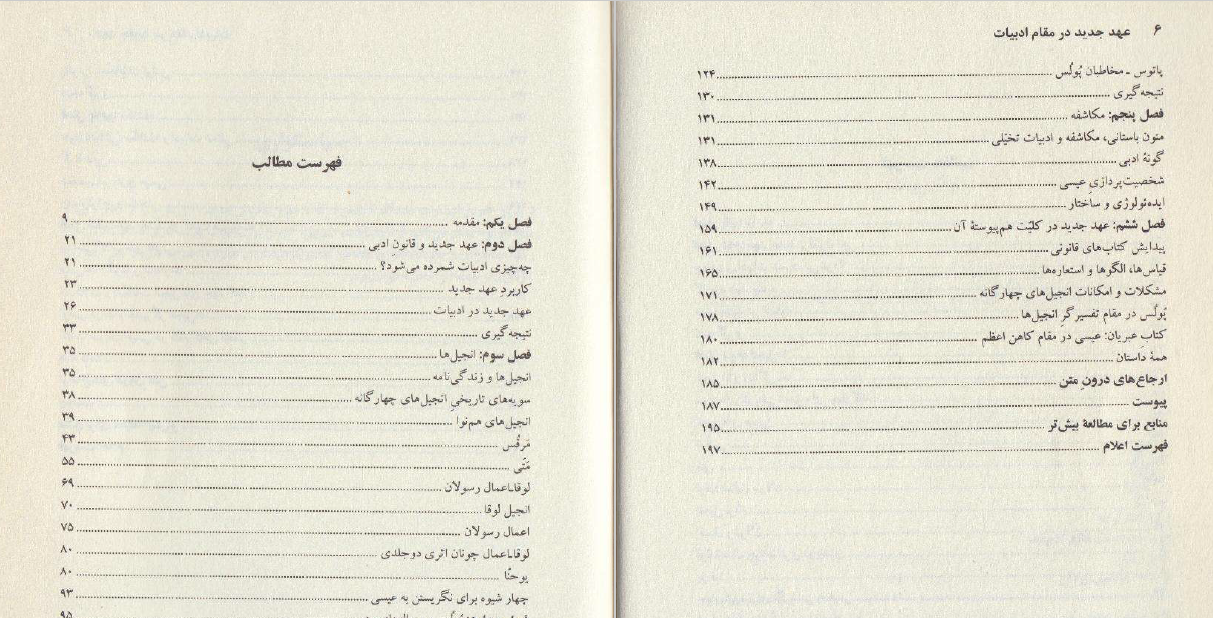 فهرست مطالب
فصل یکم: مقدمه ........ ۹
فصل دوم: عهد جدید و قانونِ ادبی ........ ۲۱
چه‌چیزی ادبیات شمرده می‌شود؟ ........ ۲۱
کاربردِ عهد جدید ........ ۲۳
عهد جدید در ادبیات ........ ۲۶
نتیجه‌گیری ........ ۳۳
فصل سوم: انجیل‌ها ........ ۳۵
انجیل‌ها و زندگی‌نامه ........ ۳۵
سویه‌های تاریخیِ انجیل‌های چهارگانه ........ ۳۸
انجیل‌های هم‌نوا ........ ۳۹
مَرقُس ........ ۴۳
مَتّی ........ ۵۵
لوقا-اعمال رسولان ........ ۶۹
انجیل لوقا ........ ۷۰
اعمال رسولان ........ ۷۵
لوقا-اعمال چونان اثری دوجلدی ........ ۸۰
یوحنّا ........ ۸۰
چهار شیوه برای نگریستن به عیسی ........ ۹۳
۹۵
۶ عهد جدید در مقام ادبیات
پاتوس ـ مخاطبان پُولُس ........ ۱۲۴
نتیجه‌گیری ........ ۱۳۰
فصل پنجم: مکاشفه ........ ۱۳۱
متون باستانی، مکاشفه و ادبیات تخیّلی ........ ۱۳۱
گونهٔ ادبی ........ ۱۳۸
شخصیت‌پردازی عیسی ........ ۱۴۲
ایده‌ئولوژی و ساختار ........ ۱۴۹
فصل ششم: عهد جدید در کلیّت هم‌پیوستهٔ آن ........ ۱۵۹
پیدایش کتاب‌های قانونی ........ ۱۶۱
قیاس‌ها، الگوها و استعاره‌ها ........ ۱۶۵
مشکلات و امکانات انجیل‌های چهارگانه ........ ۱۷۱
پُولُس در مقام تفسیرگرِ انجیل‌ها ........ ۱۷۸
کتابِ عبریان: عیسی در مقام کاهن اعظم ........ ۱۸۰
همهٔ داستان ........ ۱۸۲
ارجاع‌های درونِ متن ........ ۱۸۵
پیوست ........ ۱۸۷
منابع برای مطالعهٔ بیش‌تر ........ ۱۹۵
فهرست اعلام ........ ۱۹۷